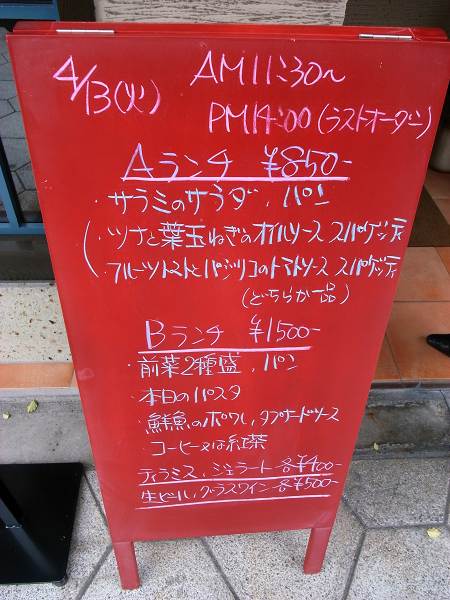 4/13(火) AM11:30〜
PM14:00(ラストオーダー)
Aランチ ¥850-
・サラミのサラダ、パン
・ツナと葉玉ねぎのオイルソース スパゲッティ
・フルーツトマトとバジリコのトマトソース スパゲッティ
(どちらか一品)
Bランチ ¥1500-
・前菜2種盛、パン
・本日のパスタ
・鮮魚のポワレ、タプナードソース
・コーヒー又は紅茶
ティラミス、ジェラート 各¥400-
生ビール、グラスワイン 各¥500-